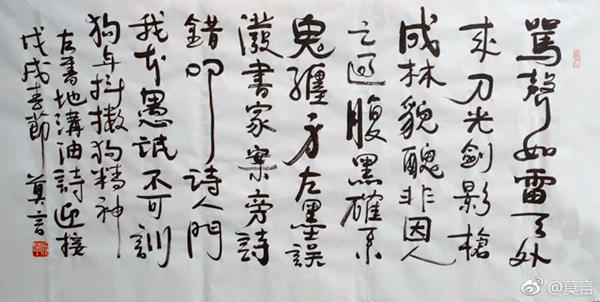 罵聲如雷天外
来刀光劍影槍
成林貌醜非因人
之過腹黑確系
鬼纏身左墨誤
潑書家案旁詩
錯叩詩人門
我本愚氓不可訓
狗年抖擻狗精神
左書地溝油詩迎接
戊戌春節 莫言
@莫言